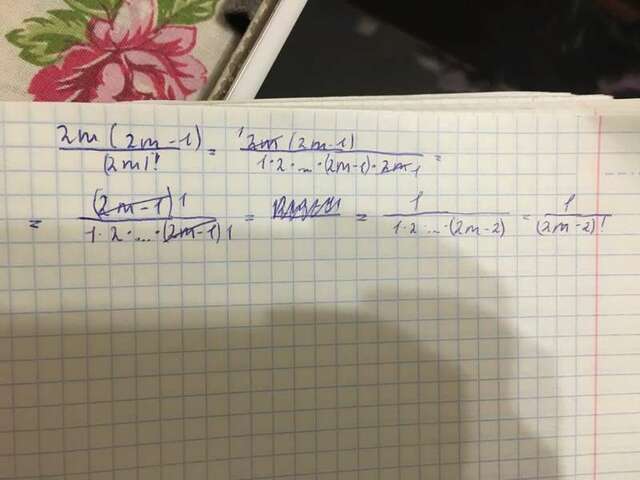 2m(2m-1)/(2m)! = 2m(2m-1)/1·2·...·(2m-1)·2m =
= (2m-1)/1·2·...·(2m-1) = = 1/1·2·...·(2m-2) = 1/(2m-2)!